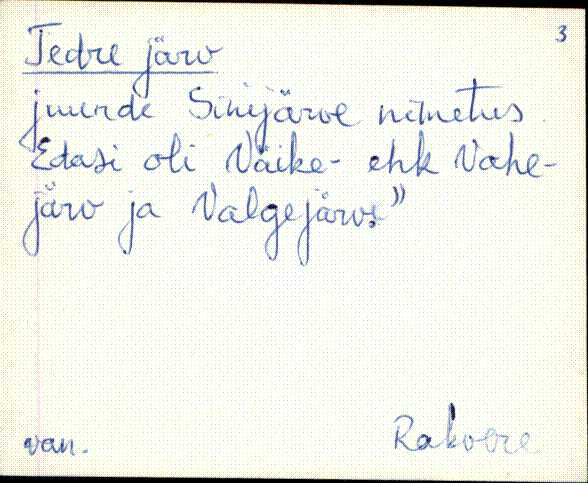 3
Tedre järv
juurde Sinijärve nimetus.
Edasi oli Väike- ehk Vahe-
järv ja Valgejärv."
van.
Rakvere